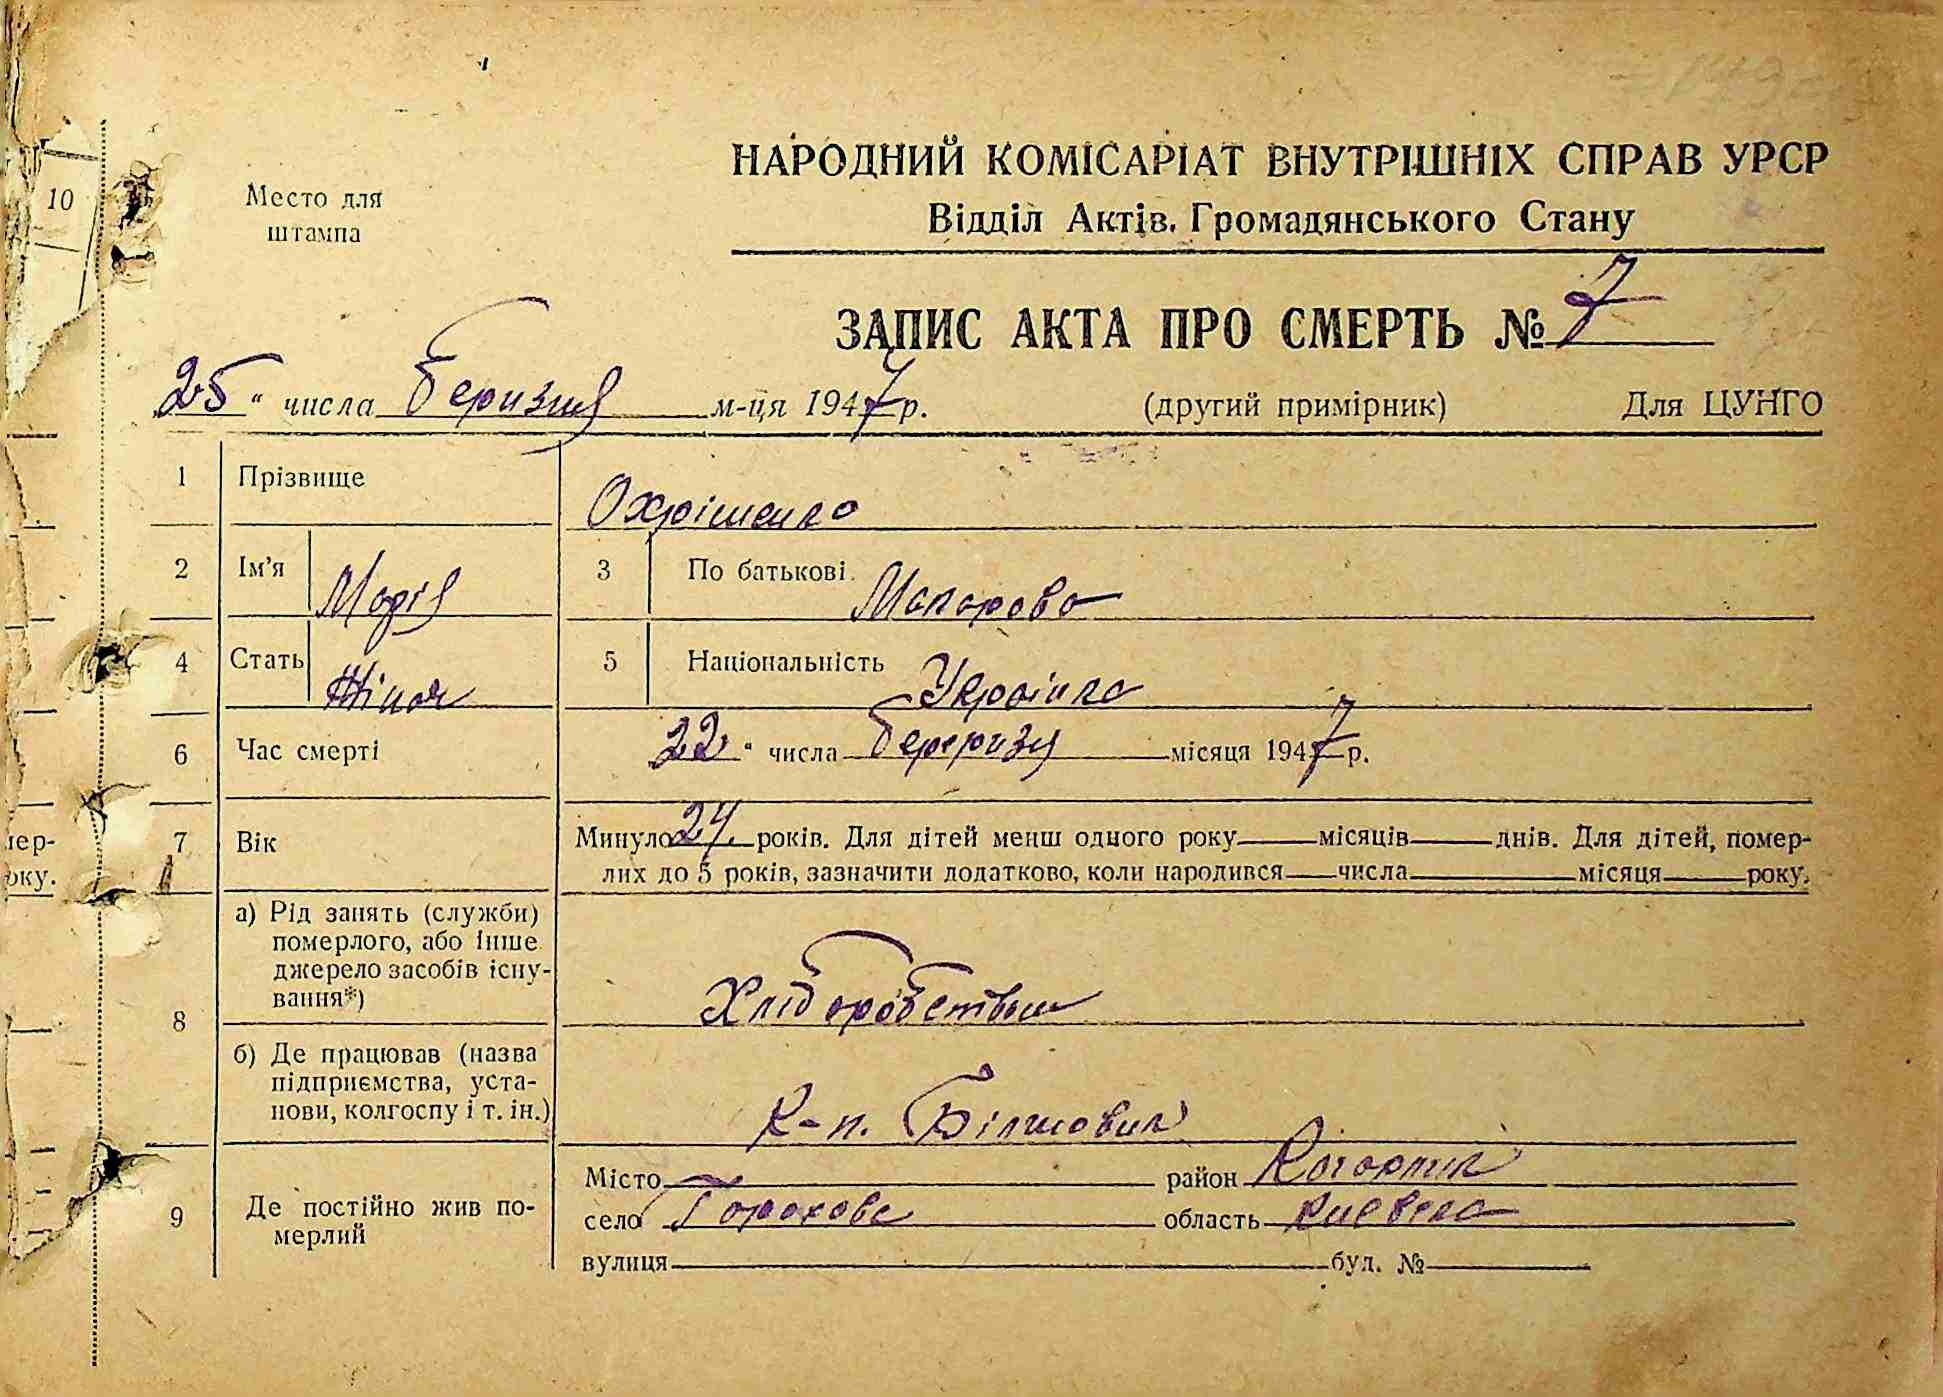 10
Место для
штампа
НАРОДНИЙ КОМІСАРІАТ ВНУТРІШНІХ СПРАВ УРСР
Відділ Актів Громадянського Стану
ЗАПИС АКТА ПРО СМЕРТЬ № 7
25 " числа березня м-ця 1947 р. (другий примірник) Для ЦУНГО
1 Прізвище Охріменко
2 Ім'я Марія 3 По батькові Макарова
4 Стать Жіноч 5 Національність Українка
6 Час смерті 22 " числа місяця 1947 р.
7 Вік Минуло 24. років. Для дітей менш одного року місяців днів. Для дітей, помер-
лих до 5 років, зазначити додатково, коли народився числа місяця року.
8 а) Рід занять (служби)
померлого, або інше
джерело засобів існу-
вання*) Хліборобство
б) Де працював (назва
підприємства, уста-
нови, колгоспу і т. ін.) К-п. Більшовик
9 Де постійно жив по-
мерлий
Місто район Кагарлик
село Горохове область Київська
вулиця буд. №
мер-
оку.